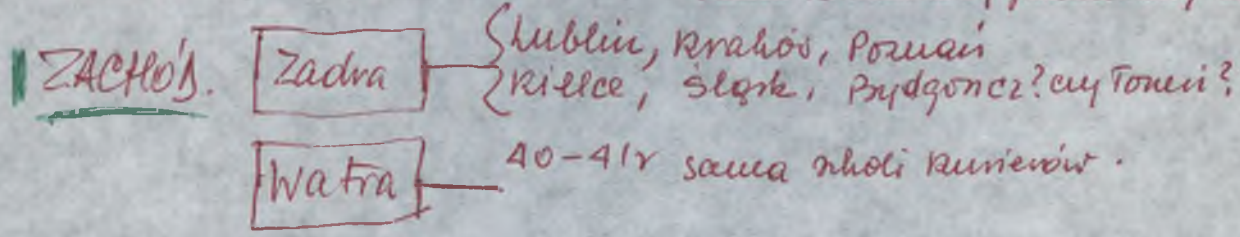 ZACHÓD. Zadra Lublin, Kraków, Poznań
Kielce, Śląsk, Bydgoszcz? czy Toruń?
Watra 40-41r sama szkoli kurierów.